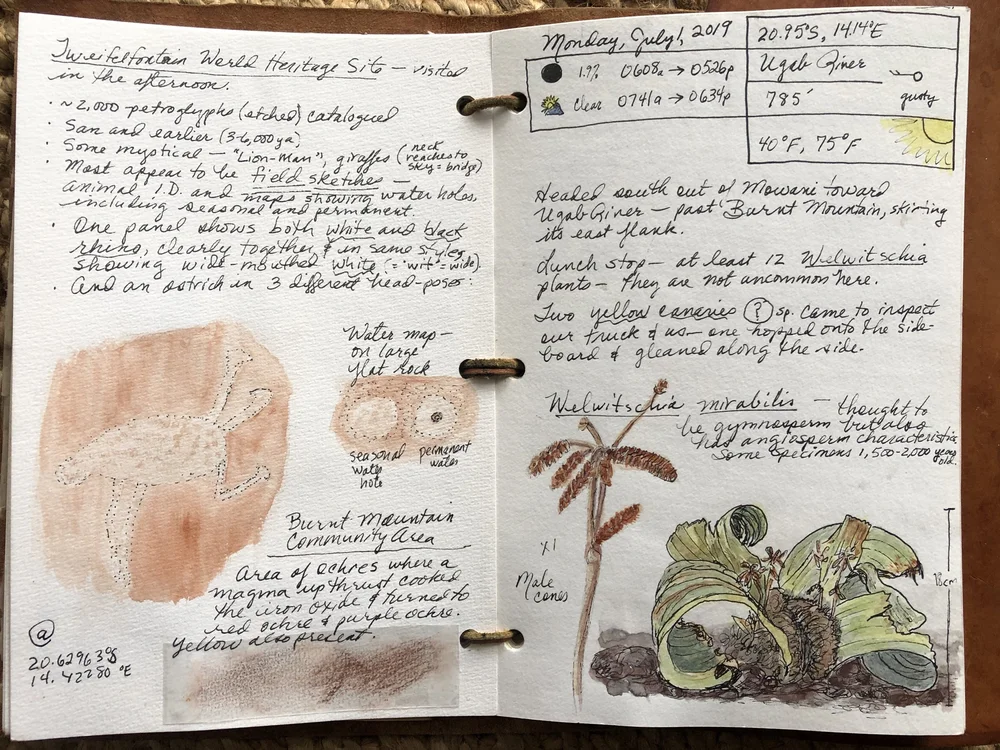 Tweifelfontain World Heritage Site — visited
in the afternoon.
· ~2,000 petroglyphs (etched) catalogued
· San and earlier (3-6,000 ya)
· Some mystical — "Lion-Man", giraffes (neck reaches to sky = bridge)
· Most appear to be field sketches —
animal I.D. and maps showing water holes,
including seasonal and permanent.
· One panel shows both white and black
rhino, clearly together & in same style,
showing wide-mouthed white (= "wit" = wide).
· And an ostrich in 3 different head-poses:
Water map —
on large
flat rock
seasonal
water
hole
permanent
water
Burnt Mountain
Community Area
Area of ochres where a
magma upthrust cooked
the iron oxide & turned to
red ochre & purple ochre.
Yellow also present.
@
20.62963°S
14.42280 °E
Monday, July 1, 2019
1.9% 0608a → 0526p
clear 0741a → 0634p
20.95°S, 14.14°E
Ugab River
785'
gusty
40°F, 75°F
Headed south out of Mowani toward
Ugab River — past Burnt Mountain, skirting
its east flank.
Lunch stop — at least 12 Welwitschia
plants — they are not uncommon here.
Two yellow canaries ? sp. came to inspect
our truck & us — one hopped onto the side-
board & gleaned along the side.
Welwitschia mirabilis — thought to
be gymnosperm but also
has angiosperm characteristics.
Some specimens 1,500-2,000 years
old.
x1
Male
cones
18cm